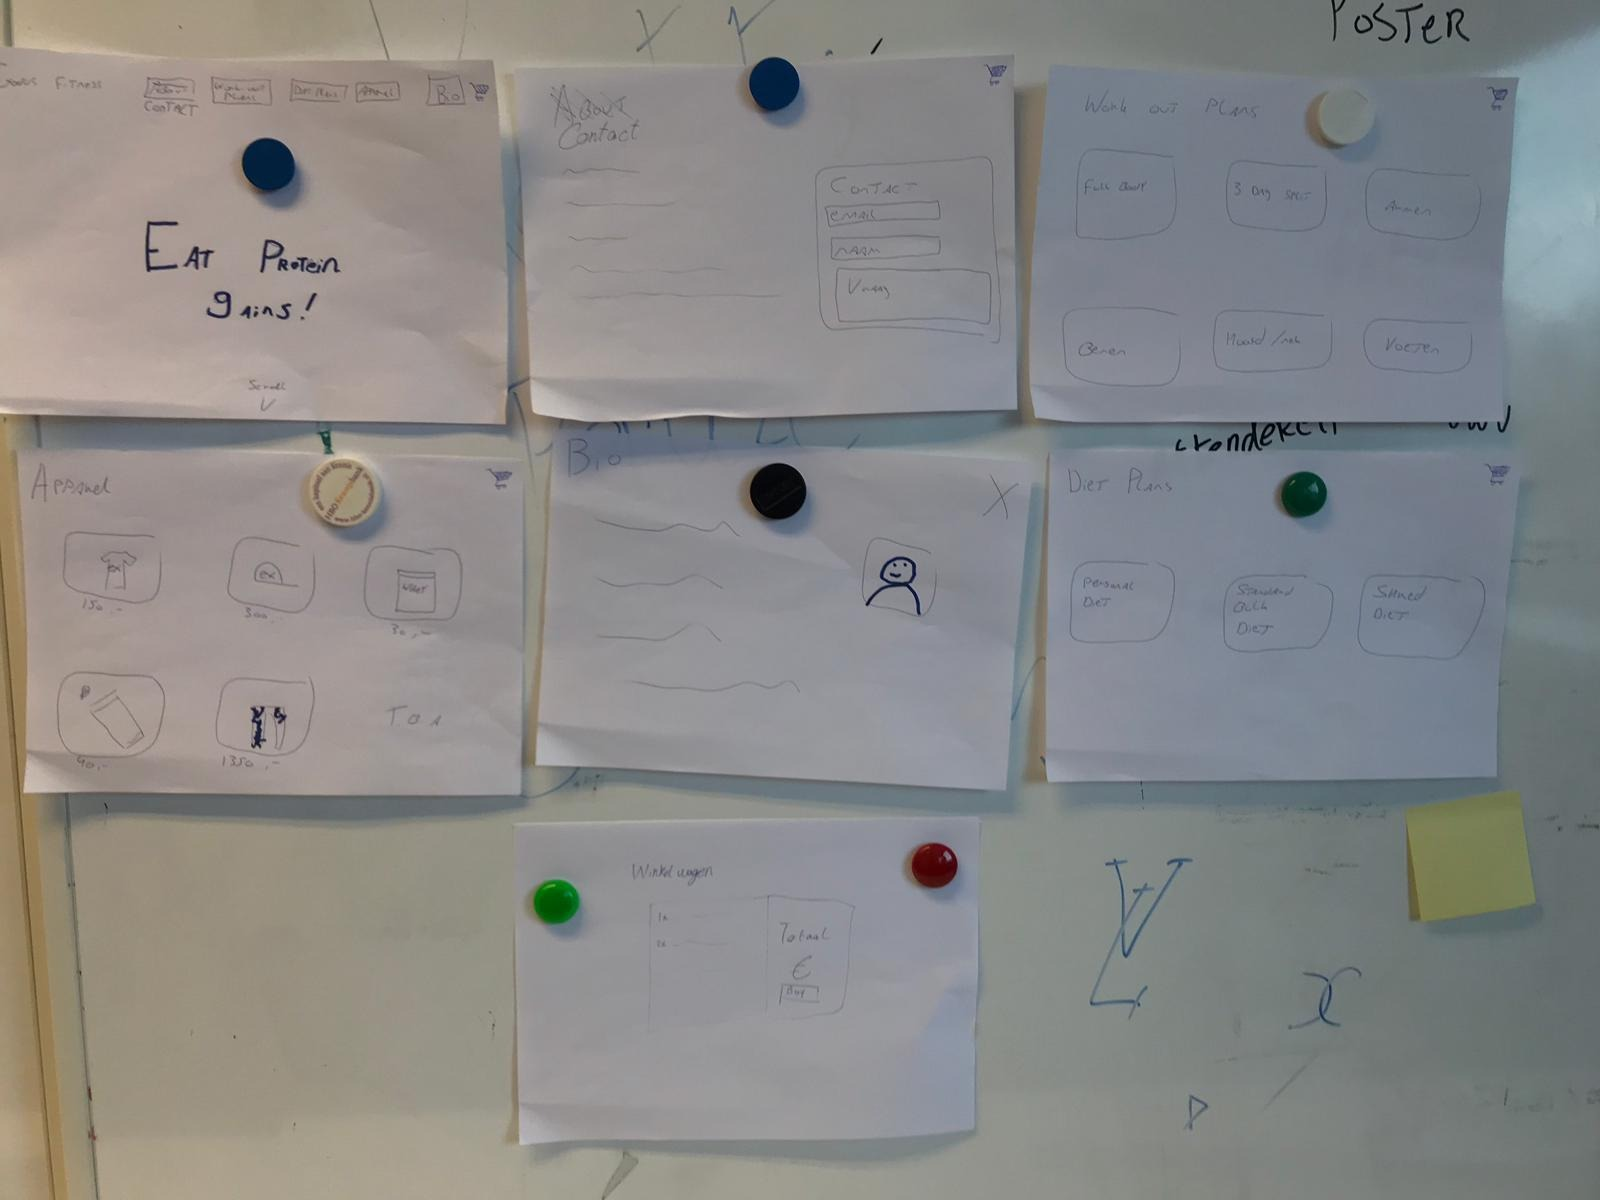 POSTER
Fitness
Contact
Diet Plans
Apparel
Bio
Eat Protein
gains!
Scroll
About
Contact
Contact
email
naam
Vraag
Work out Plans
Full Body
3 Day split
Armen
Benen
Hoofd / nek
Voeten
Apparel
EX
150,-
EX
300,-
30,-
40,-
1350,-
Bio
X
Diet Plans
Personal
Diet
Standard
Bulk
Diet
Shred
Diet
Winkelwagen
1x
2x
Totaal
€
Buy